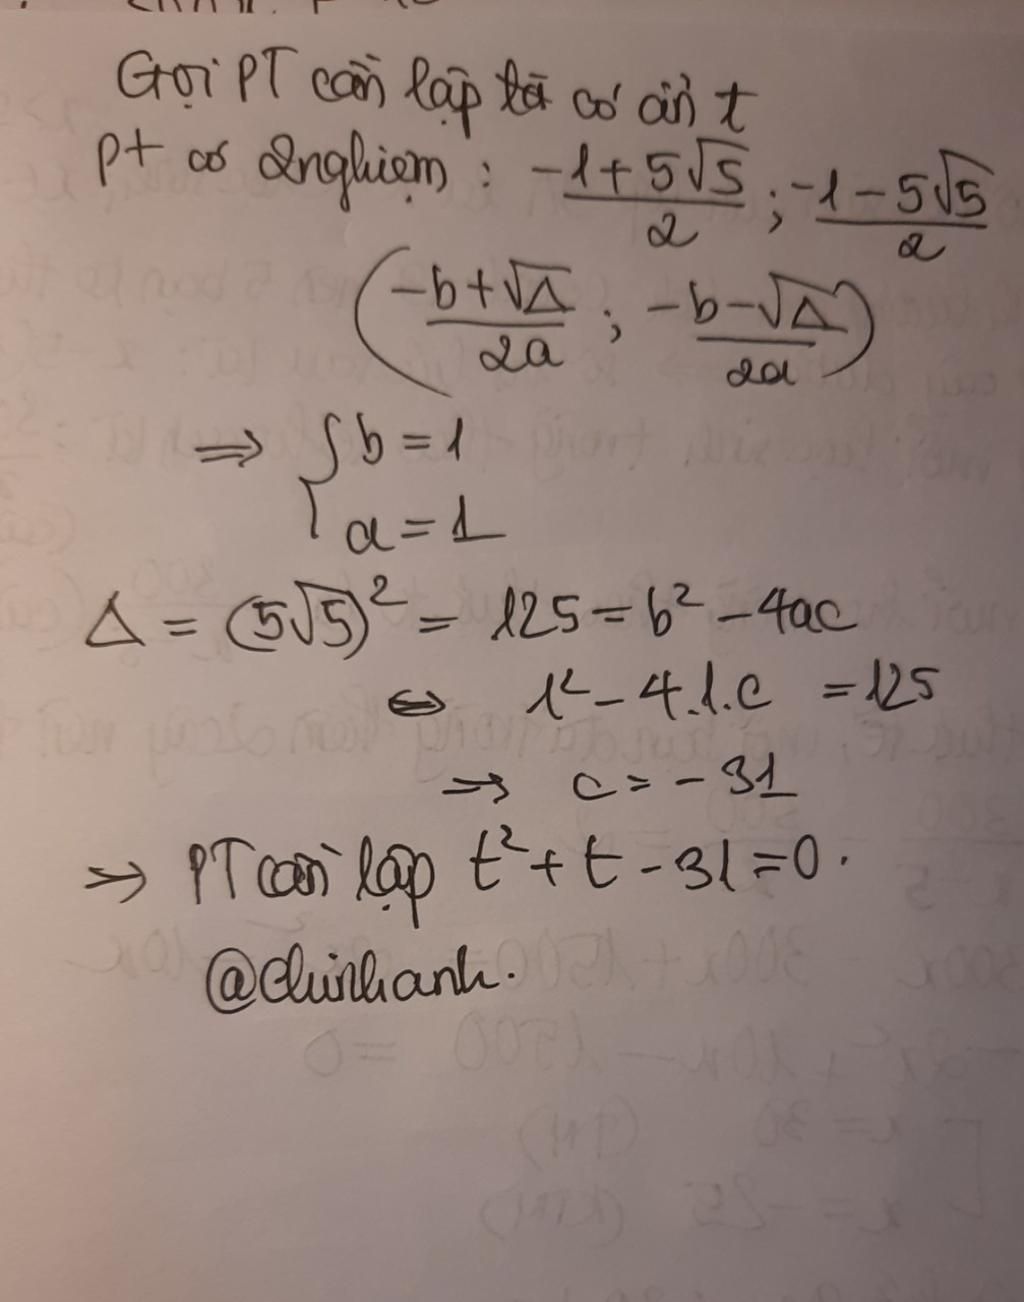 Gọi PT cần lập có ẩn t
pt có 2 nghiệm : -1+5√5/2 ; -1-5√5/2
(-b+√Δ/2a ; -b-√Δ/2a)
⇒ { b = 1
a = 1
Δ = (5√5)² = 125 = b² - 4ac
⇔ 1² - 4.1.c = 125
⇒ c = - 31
⇒ PT cần lập t² + t - 31 = 0.
@chinhanh.